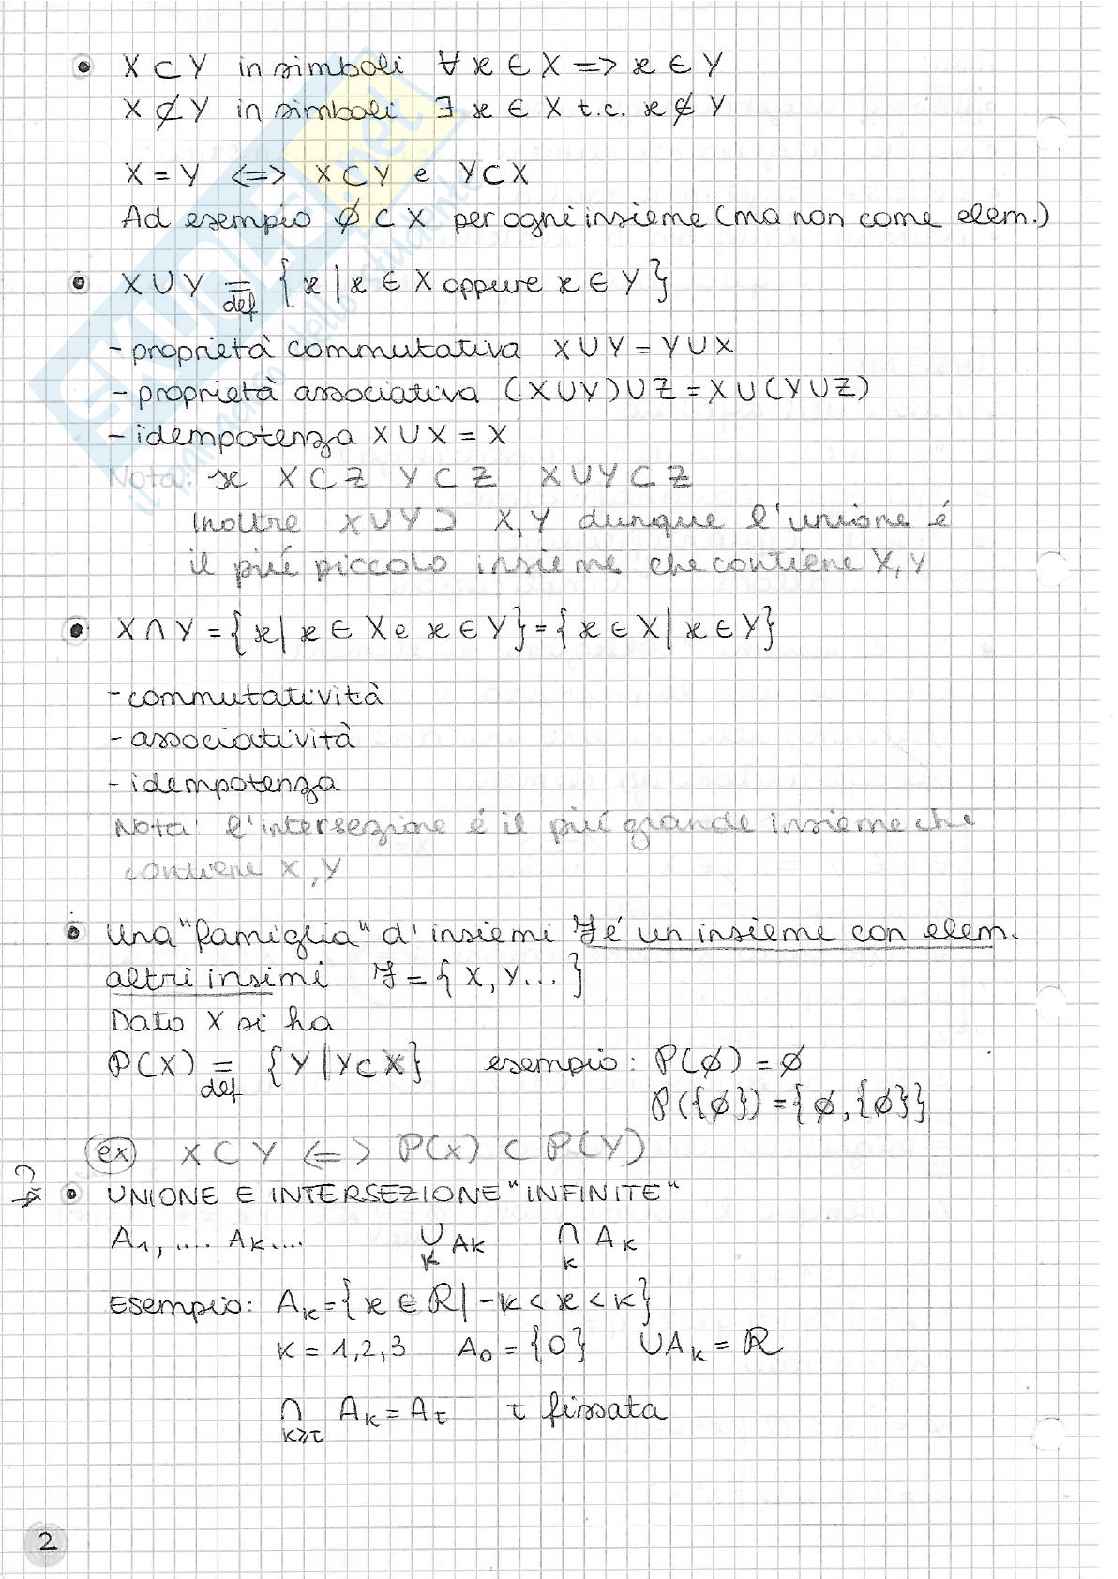 • X ⊂ Y in simboli ∀ x ∈ X => x ∈ Y
X ⊄ Y in simboli ∃ x ∈ X t.c. x ∉ Y
X = Y <=> X ⊂ Y e Y ⊂ X
Ad esempio ∅ ⊂ X per ogni insieme (ma non come elem.)
• X ∪ Y =def { x | x ∈ X oppure x ∈ Y }
- proprietà commutativa X ∪ Y = Y ∪ X
- proprietà associativa (X ∪ Y) ∪ Z = X ∪ (Y ∪ Z)
- idempotenza X ∪ X = X
Nota: se X ⊂ Z Y ⊂ Z X ∪ Y ⊂ Z
Inoltre X ∪ Y ⊃ X, Y dunque l'unione é
il piú piccolo insieme che contiene X, Y
• X ∩ Y = { x | x ∈ X e x ∈ Y } = { x ∈ X | x ∈ Y }
- commutatività
- associatività
- idempotenza
Nota: l'intersezione é il piú grande insieme che
contiene X, Y
• Una "famiglia" d'insiemi F é un insieme con elem.
altri insimi F = { X, Y... }
Dato X si ha
P(X) =def { Y | Y ⊂ X } esempio: P(∅) = ∅
P({∅}) = {∅, {∅}}
ex X ⊂ Y <=> P(X) ⊂ P(Y)
• UNIONE E INTERSEZIONE "INFINITE"
A₁, .... Aₖ.... ∪ₖ Aₖ ∩ₖ Aₖ
Esempio: Aₖ = { x ∈ ℝ | -k < x < k }
K = 1,2,3 A₀ = {0} ∪Aₖ = ℝ
∩ k≥τ Aₖ = Aτ τ fissata
2